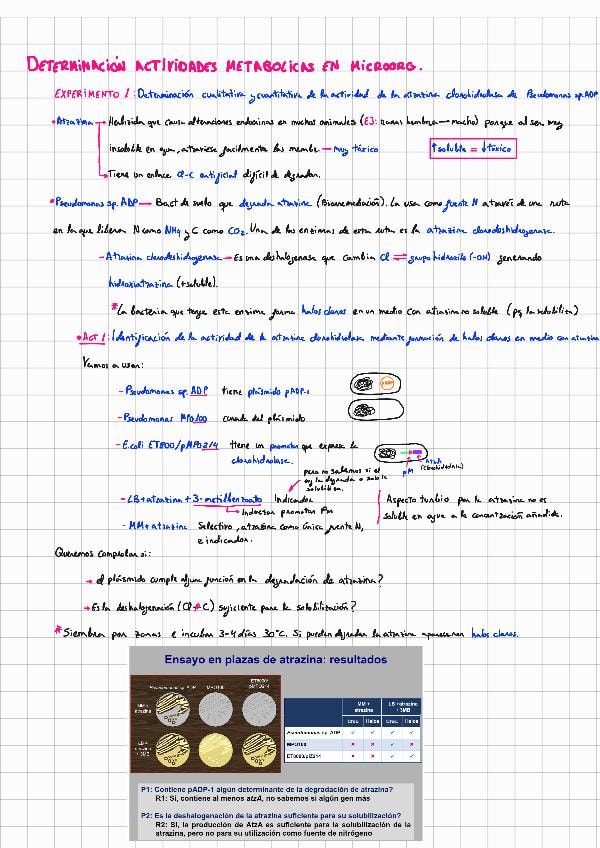 DETERMINACIÓN ACTIVIDADES METABÓLICAS EN MICROORG.
EXPERIMENTO 1: Determinación cualitativa y cuantitativa de la actividad de la atrazina clorohidrolasa de Pseudomonas sp. ADP
• Atrazina → Herbicida que causa alteraciones endocrinas en muchos animales (EJ: ranas hembra → macho) porque al ser muy
insoluble en agua, atraviesa facilmente las membr → muy tóxico
↑soluble = ↓tóxico
→ Tiene un enlace Cl-C artificial difícil de degradar.
• Pseudomonas sp. ADP → Bact de suelo que degrada atrazina (Biorremediación). La usa como fuente N a través de una ruta
en la que liberan N como NH4 y C como CO2. Una de las enzimas de esta ruta es la atrazina clorodeshidrogenasa.
- Atrazina clorodeshidrogenasa → Es una deshalogenasa que cambia Cl ⇌ grupo hidroxilo (-OH) generando
hidroxiatrazina (+ soluble).
* La bacteria que tenga esta enzima forma halos claros en un medio con atrazina no soluble (pq la solubiliza)
• Act 1: Identificación de la actividad de la atrazina clorohidrolasa mediante formación de halos claros en medio con atrazina
Vamos a usar:
- Pseudomonas sp. ADP tiene plásmido pADP-1
- Pseudomonas MPO100 curada del plásmido
- E.coli ET800/pMPO214 tiene un promotor que exprese la
clorohidrolasa.
PM
AtzA
(clorohidrolasa)
pero no sabemos si el
la degrada o solo la
solubiliza.
- LB + atrazina + 3-metilbenzoato Indicador
→ Inductor promotor Pm
Aspecto turbio por la atrazina no es
soluble en agua a la concentración añadida.
- MM + atrazina Selectivo, atrazina como única fuente N,
e indicador.
Queremos comprobar si:
→ el plásmido cumple alguna función en la degradación de atrazina?
→ Es la deshalogenación (Cl C) suficiente para la solubilización?
* Siembra por zonas e incubar 3-4 días 30°C. Si pueden degradar la atrazina aparecerán halos claros.
Ensayo en plazas de atrazina: resultados
Pseudomonas sp. ADP MPO100 ET8000/
pMPO214
MM +
atrazina
LB +
atrazina
+ 3MB
MM +
atrazina
LB +atrazina
+ 3MB
Crec. Halos Crec. Halos
Pseudomonas sp. ADP ✓ ✓ ✓ ✓
MPO100 × × ✓ ×
ET8000/pIZ214 × × ✓ ✓
P1: Contiene pADP-1 algún determinante de la degradación de atrazina?
R1: Sí, contiene al menos atzA, no sabemos si algún gen más
P2: Es la deshalogenación de la atrazina suficiente para su solubilización?
R2: Sí, la producción de AtzA es suficiente para la solubilización de la
atrazina, pero no para su utilización como fuente de nitrógeno